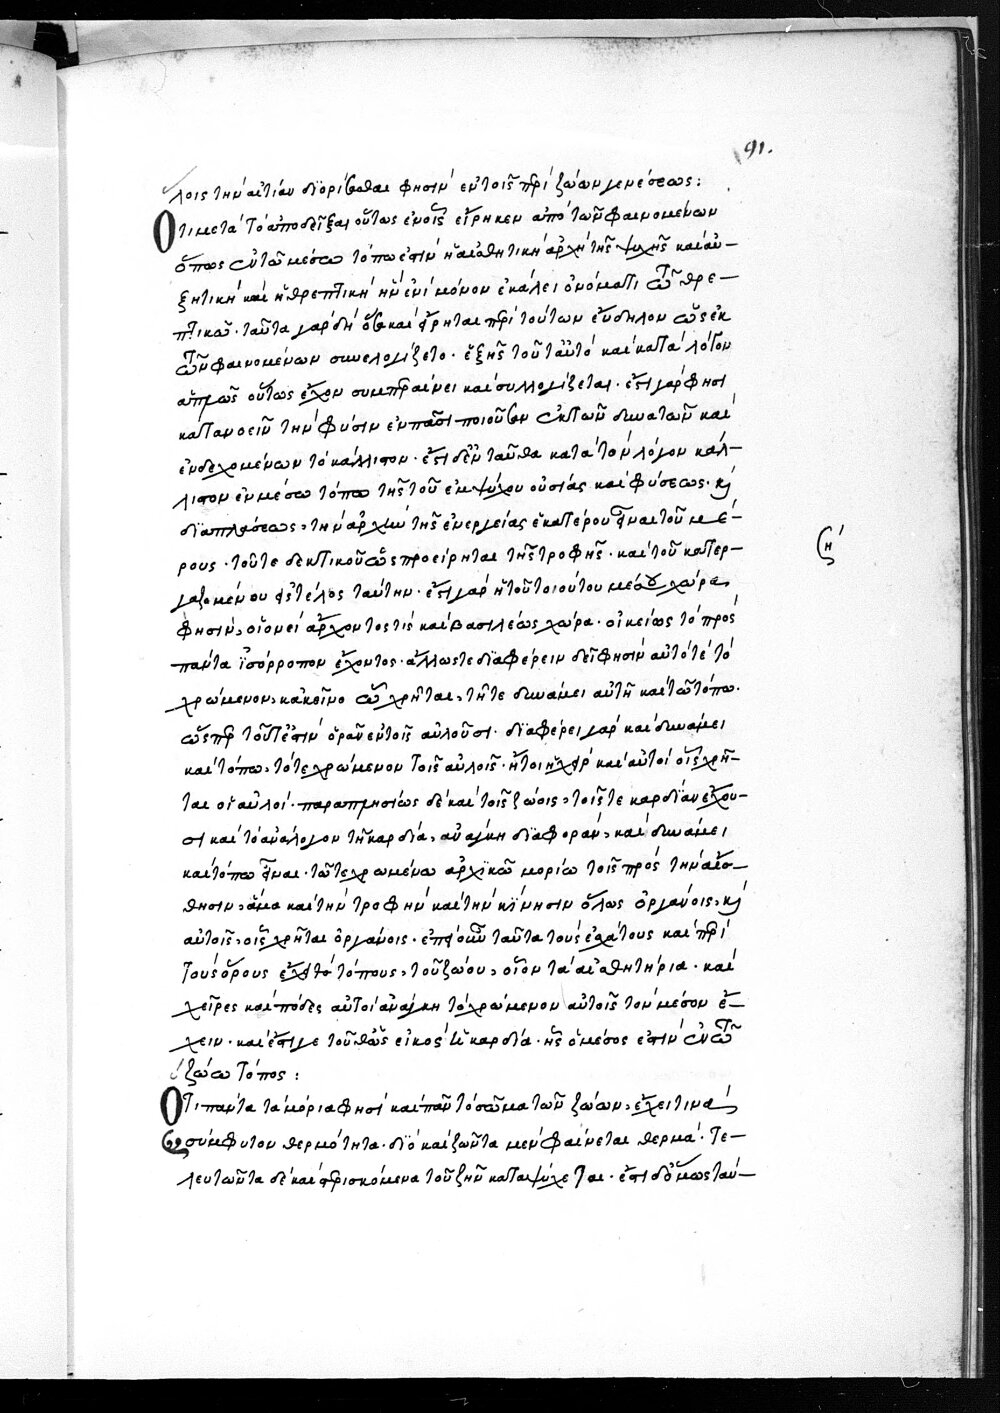 91.
λοις τὴν αἰτίαν διορίσασθαι φησὶν ἐν τοῖς περὶ ζώων γενέσεως:
Ὅτι μετὰ τὸ ἀποδεῖξαι οὕτως ἐν οἷς εἴρηκεν ἀπὸ τῶν φαινομένων
ὅπως ἐν τῶ μέσω τόπω ἐστὶν ἡ αἰσθητικὴ ἀρχὴ τῆς ψυχῆς καὶ αὐ-
ξητικὴ καὶ ἡ θρεπτικὴ ἣν ἑνὶ μόνον ἐκάλει ὀνόματι τῶ θρε-
πτικῶ. ταῦτα γὰρ δὴ ὅσα καὶ εἴρηται περὶ τούτων εὔδηλον ὡς ἐκ
τῶν φαινομένων συνελογίζετο. ἑξῆς τοῦτ' αὐτὸ καὶ κατὰ λόγον
ἁπλῶς οὕτως ἔχον συμπεραίνει καὶ συλλογίζεται. ἔστι γὰρ φησι
κατανοεῖν τὴν φύσιν ἐν πᾶσι ποιοῦσαν ἐκ τῶν δυνατῶν καὶ
ἐνδεχομένων τὸ κάλλιστον. ἔστι δ' ἐνταῦθα κατὰ τὸν λόγον κάλ-
λιστον ἐν μέσω τόπω τῆς τοῦ ἐμψύχου οὐσίας καὶ φύσεως. καὶ
διαπλάσεως, τὴν ἀρχὴν τῆς ἐνεργείας ἑκατέρου εἶναι τοῦ μέ-
ρους. τοῦ τε δεκτικοῦ ὡς προείρηται τῆς τροφῆς. καὶ τοῦ κατερ-
γαζομένου εἰς τέλος ταύτην. ἔστι γὰρ ἡ τοῦ τοιούτου μέσου χώρα
φησὶν, οἱονεὶ ἄρχοντός τις καὶ βασιλέως χώρα. οἰκείως τὸ πρὸς
πάντα ἰσόρροπον ἔχοντος. ἄλλως τε διαφέρειν δεῖ φησὶν αὐτό τε τὸ
χρώμενον, κακεῖνο ὧ χρῆται, τῆ τε δυνάμει αὐτῆ καὶ τῶ τόπω.
ὥσπερ τοῦτ' ἐστὶν ὁρᾶν ἐν τοῖς αὐλοῦσι. διαφέρει γὰρ καὶ δυνάμει
καὶ τόπω, τό τε χρώμενον τοῖς αὐλοῖς. ἤτοι ἡ χεὶρ καὶ αὐτοὶ οἷς χρῆ-
ται οἱ αὐλοί. παραπλησίως δὲ καὶ τοῖς ζώοις, τοῖς τε καρδίαν ἔχου-
σι καὶ τὸ ἀνάλογον τῆ καρδία, ἀνάγκη διαφορὰν, καὶ δυνάμει
καὶ τόπω εἶναι. τῶ τε χρωμένω ἀρχικῶ μορίω τοῖς πρὸς τὴν αἴσ-
θησιν, ἅμα καὶ τὴν τροφὴν καὶ τὴν κίνησιν ὅλως ὀργάνοις, καὶ
αὐτοῖς, οἷς χρῆται ὀργάνοις. ἐπεὶ οὖν ταῦτα τοὺς ἐσχάτους καὶ περὶ
τοὺς ὅρους τόπους, τοῦ ζώου, οἷον τὰ αἰσθητήρια. καὶ
χεῖρες καὶ πόδες αὐτοὶ ἀνάγκη τὸ χρώμενον αὐτοῖς τὸν μέσον ἔ-
χειν. καὶ ἔστι γε τοῦθ' ὡς εἰκὸς ἡ καρδία. ἧς ὁ μέσος ἐστὶν ἐν τῶ
ζώω τόπος:
Ὅτι πάντα τὰ μόρια φησὶ καὶ πᾶν τὸ σῶμα τῶν ζώων, ἔχει τινὰ
σύμφυτον θερμότητα. διὸ καὶ ζῶντα μὲν φαίνεται θερμά. τε-
λευτῶντα δὲ καὶ στερισκόμενα τοῦ ζῆν καταψύχεται. ἔστι δ' ὅμως ταύ-